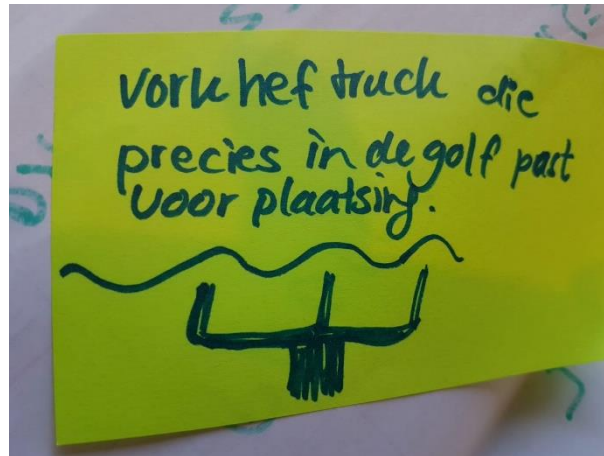 vorkheftruck die
precies in de golf past
voor plaatsing.